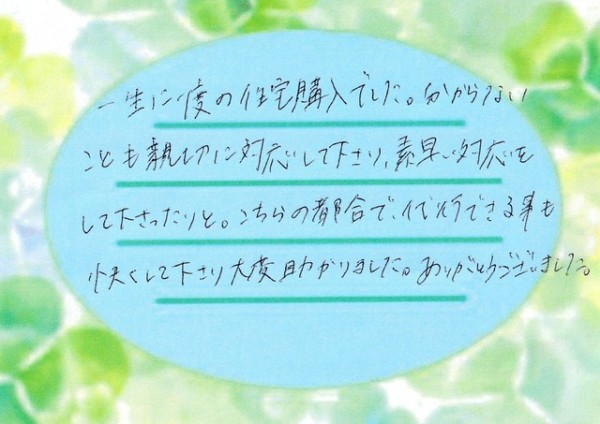 一生に一度の住宅購入でした。分からない
ことも親切に対応して下さり、素早い対応を
して下さったりと。こちらの都合で、代行できる事も
快くして下さり大変助かりました。ありがとうございました。